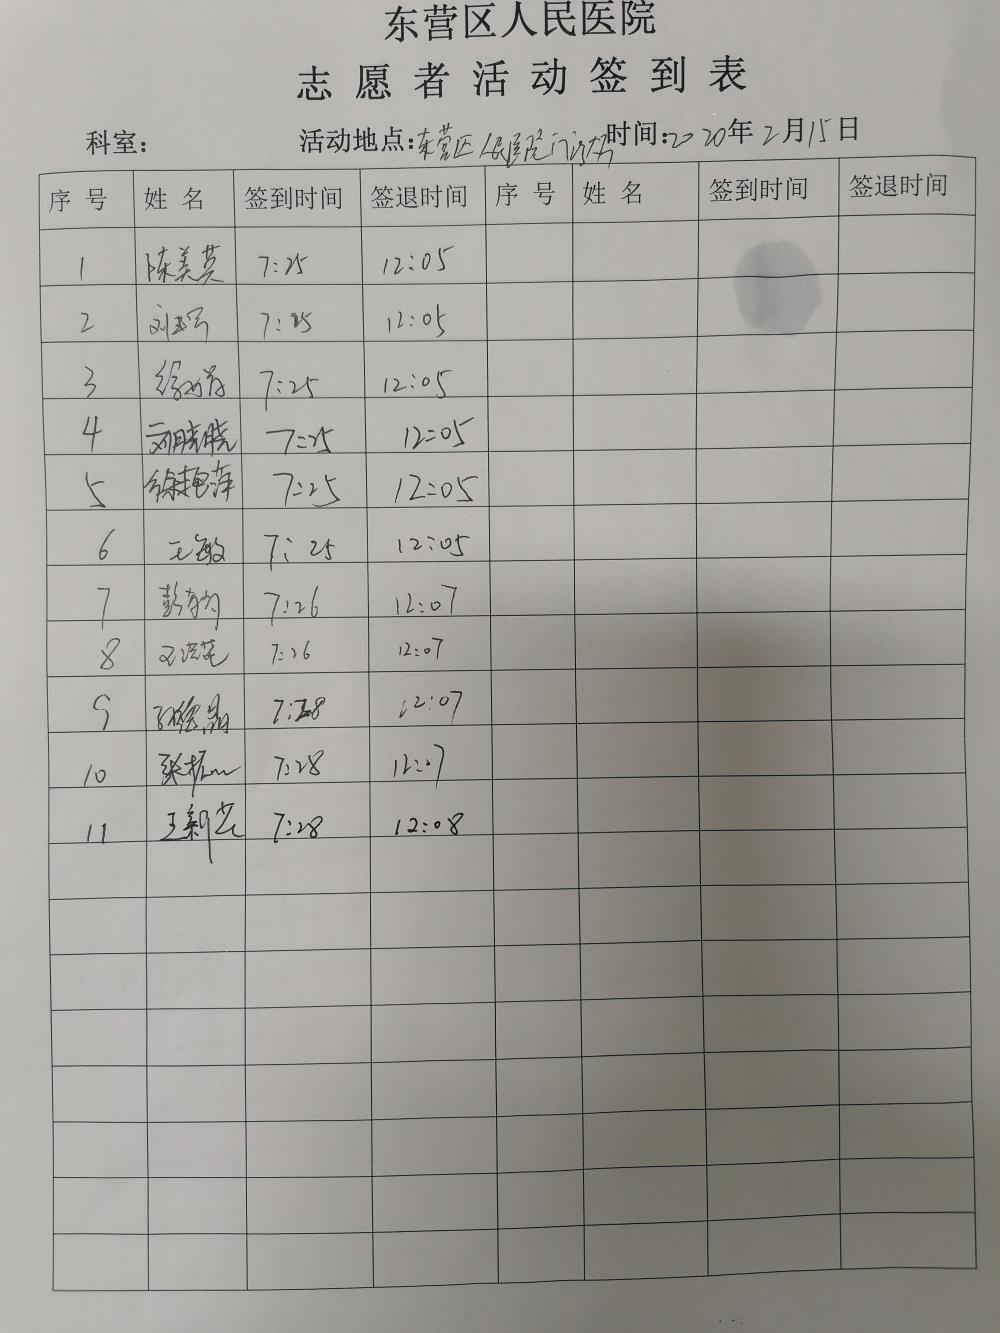 东营区人民医院
志愿者活动签到表
科室： 活动地点：东营区人民医院门诊 时间：2020年2月15日
序号 姓名 签到时间 签退时间 序号 姓名 签到时间 签退时间
1 陈美英 7:25 12:05
2 7:25 12:05
3 7:25 12:05
4 刘晓晓 7:25 12:05
5 徐艳萍 7:25 12:05
6 王敏 7:25 12:05
7 7:26 12:07
8 7:26 12:07
9 7:28 12:07
10 7:28 12:07
11 7:28 12:08